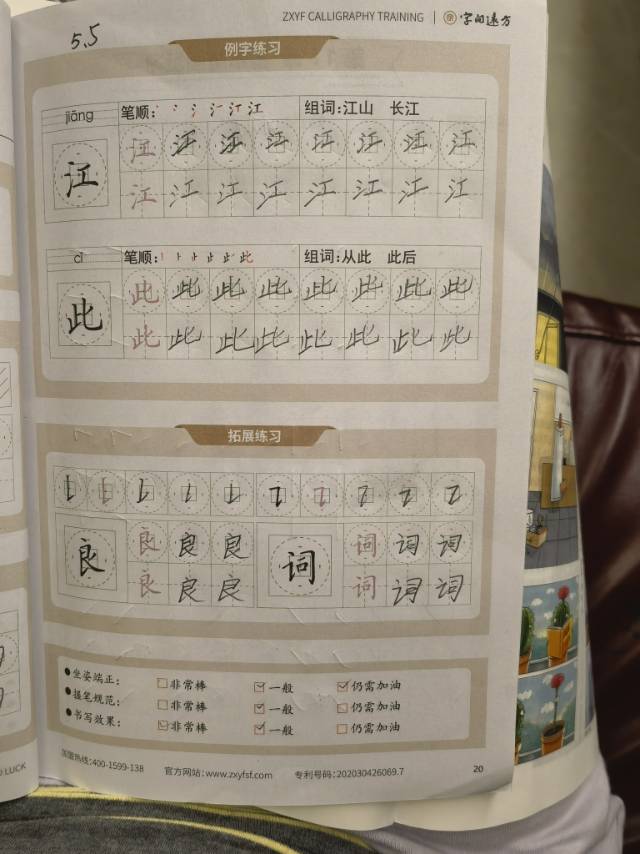 ZXYF CALLIGRAPHY TRAINING | 字阅远方
5.5
例字练习
jiāng 笔顺: 丶 丶 氵 氵 江 江 组词:江山 长江
江 江 江 江 江 江 江 江 江
江 江 江 江 江 江 江 江
cǐ 笔顺: 丨 卜 止 止 此 此 组词:从此 此后
此 此 此 此 此 此 此 此 此
此 此 此 此 此 此 此 此
拓展练习
良 良 良 良 词 词 词 词
良 良 良 词 词 词
坐姿端正: 非常棒 一般 仍需加油
握笔规范: 非常棒 一般 仍需加油
书写效果: 非常棒 一般 仍需加油
加盟热线:400-1599-138 官方网站:www.zxyfsf.com 专利号码:202030426069.7 20
LUCK